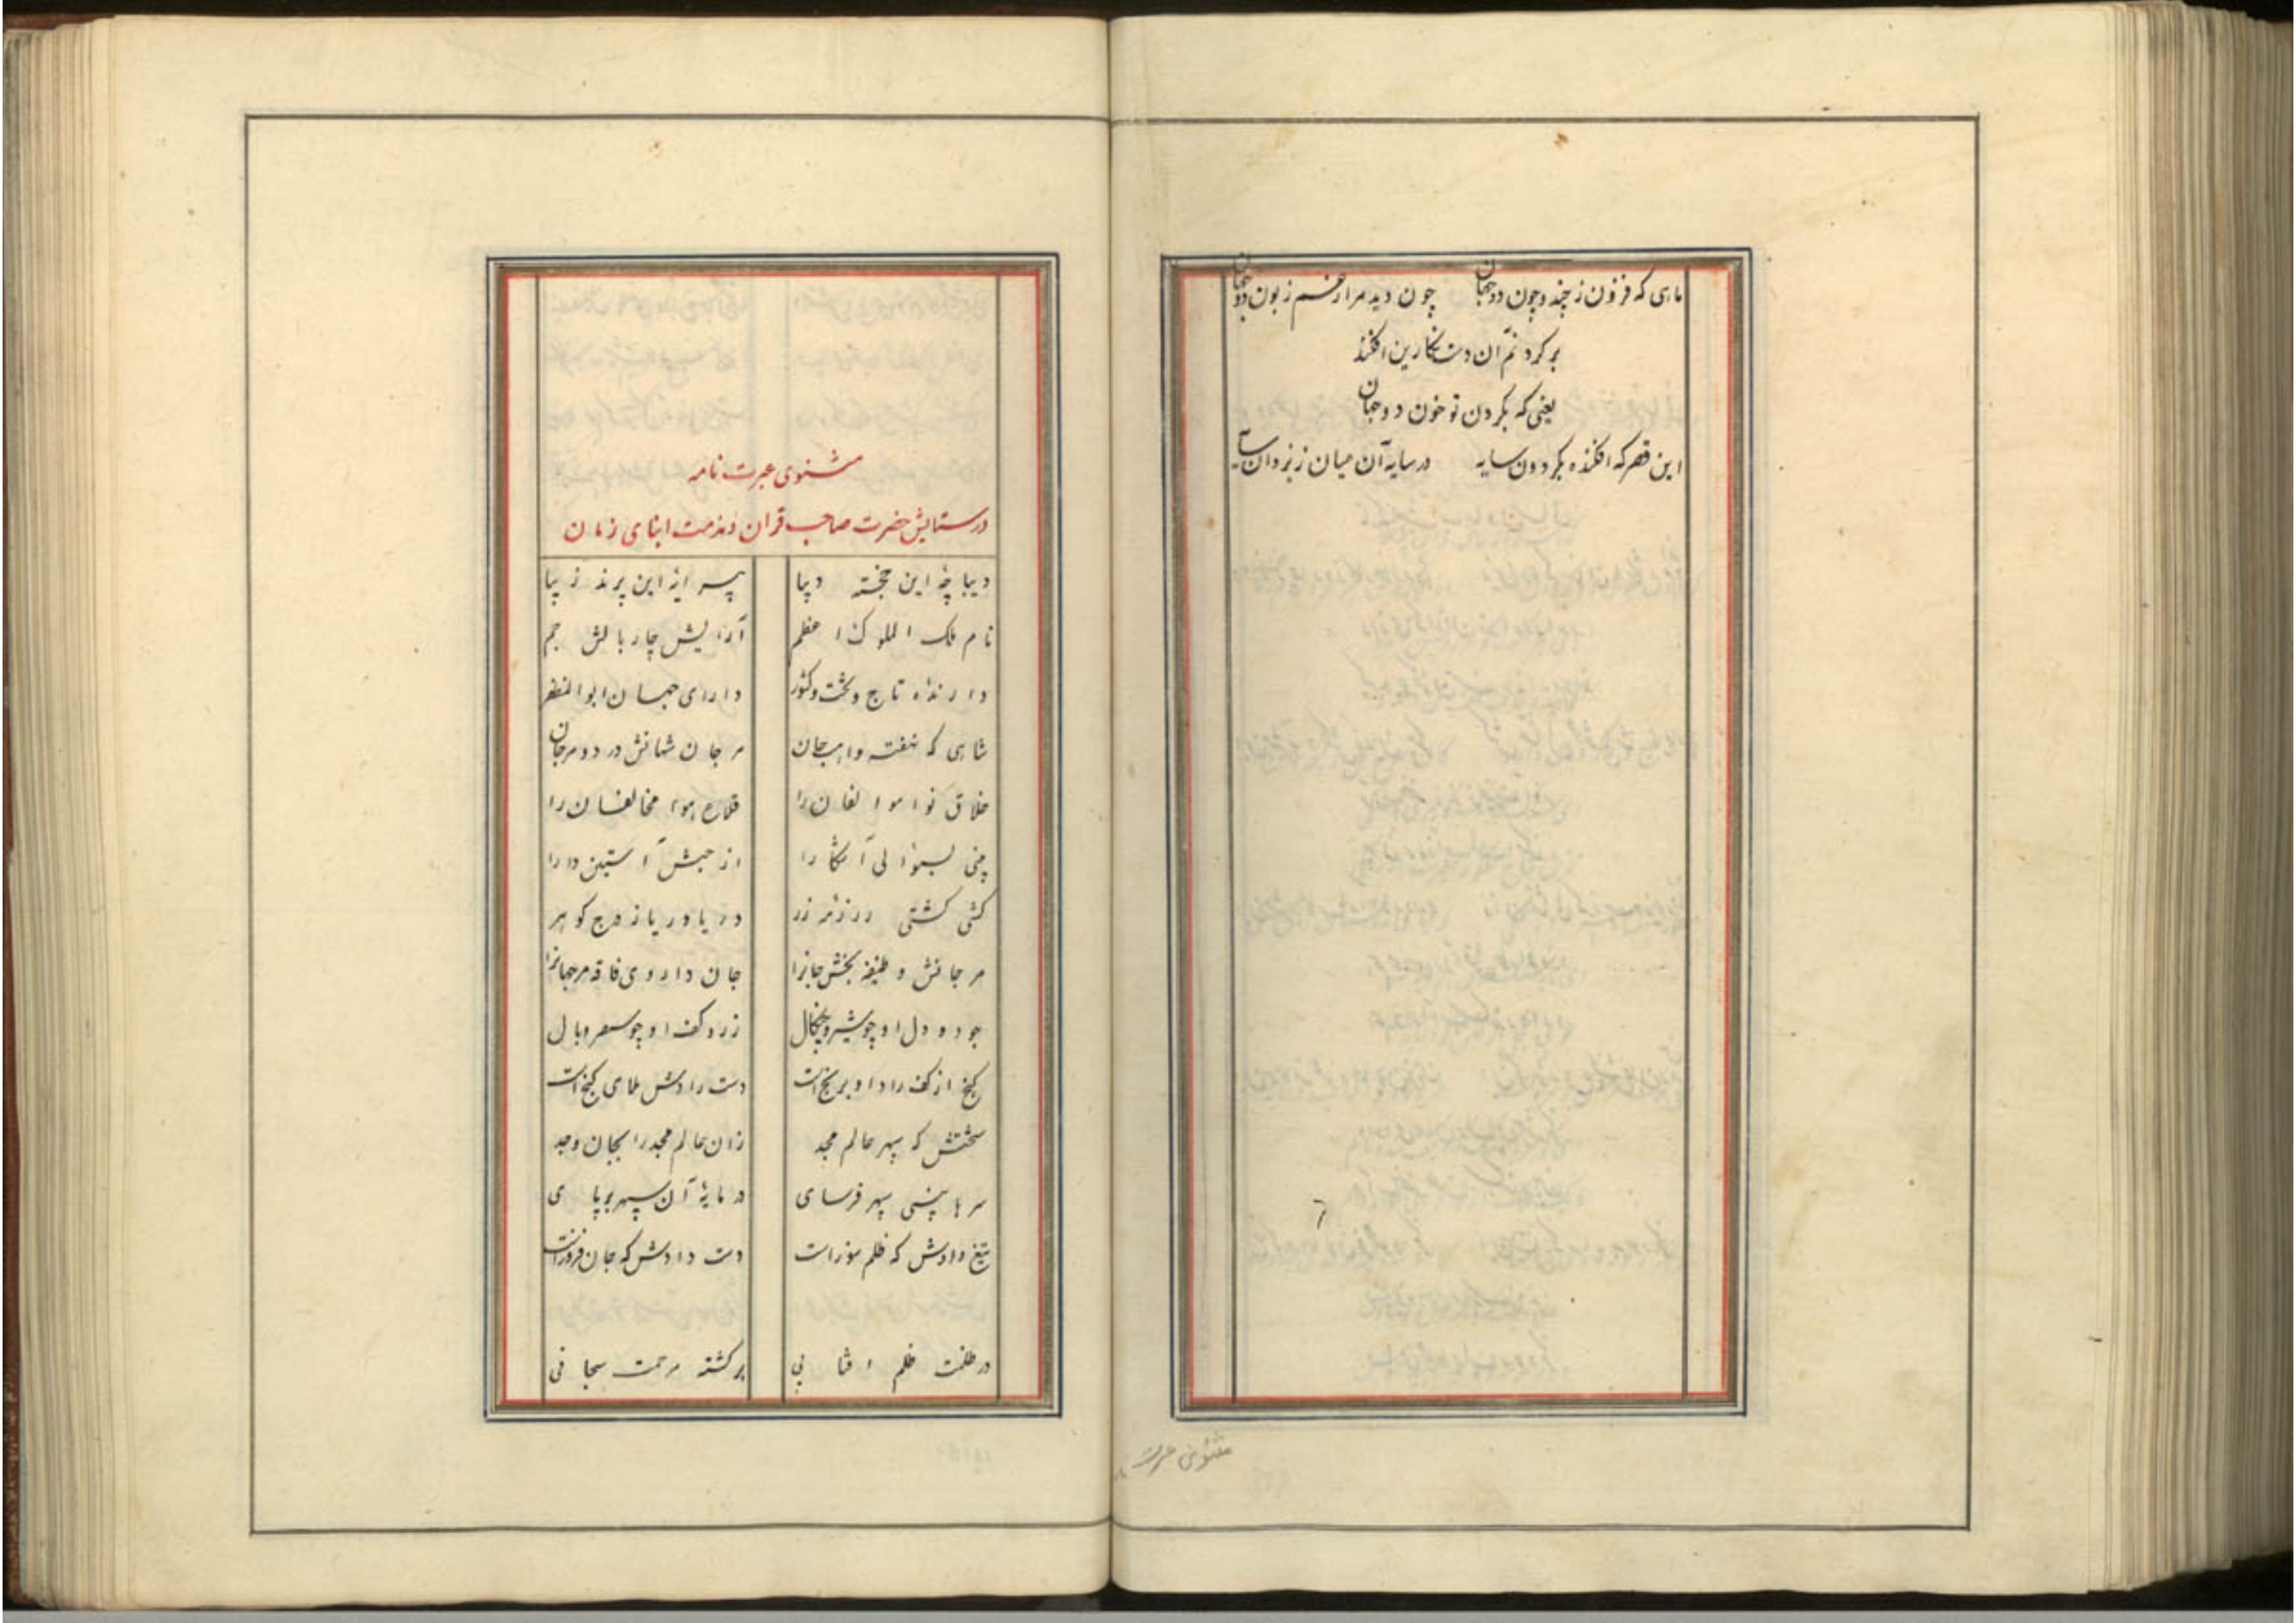 ماهی که فزون ز چند و چون دو جهان چون دید مرا ز غم زبون دو جهان
بر گردنم آن دست نگارین افکند
یعنی که بگردن تو خون دو جهان
این قصر که افکنده بگردون سایه در سایه آن میان یزدان سایه
۶
مثنوی عبرت
مثنوی عبرت نامه
در ستایش حضرت صاحب قران و مذمت ابنای زمان
دیباچهٔ این خجسته دیبا پیرایهٔ این پرند زیبا
نام ملک الملوک اعظم آرایش چار بالش جم
دارندهٔ تاج و تخت و کشور دارای جهان ابو المظفر
شاهی که نهفته واهب جان مرجان شهانش در دو مرجان
خلاق نوا موالفان را قلاع هوا مخالفان را
بینی بسؤالی آشکارا از جیش آستین دارا
کشتی کشتی زر دریا دریا ز درج گوهر
مرجانش وظیفه بخش جانرا جان داروی فاقه مر جهانرا
جود و دل او چو شیر و چنگال زر و کف او چو و بال
گنج از کف راد او برنج است دست رادش بلای گنج است
تختش که سپهر عالم مجد زان عالم مجد را بجان وجد
سرها بینی سپهر فرسای در پایهٔ آن سپهر بر پای
تیغ دادش که ظلم سوز است دست دادش که جان فروز است
در ظلمت ظلم بر کشته رحمت